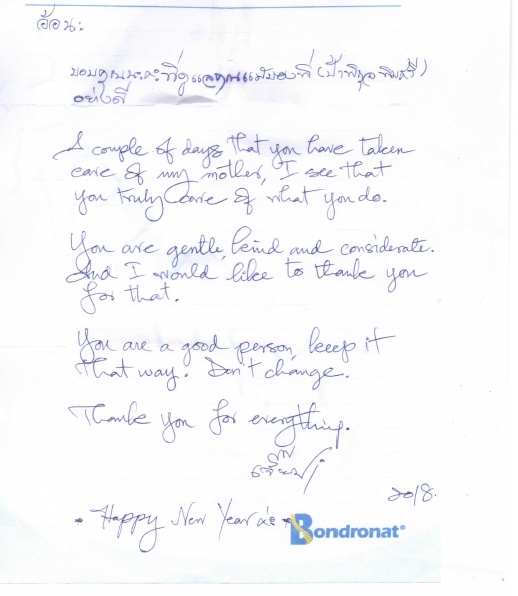 อ้อน:
ขอบคุณนะคะที่ดูแลคุณแม่ของพี่ (ป้า
อย่างดี
A couple of days that you have taken
care of my mother, I see that
you truly care of what you do.
You are gentle, kind and considerate.
And I would like to thank you
for that.
You are a good person, keep it
that way. Don't change.
Thank you for everything.
2018.
Happy New Year ค่ะ
Bondronat®